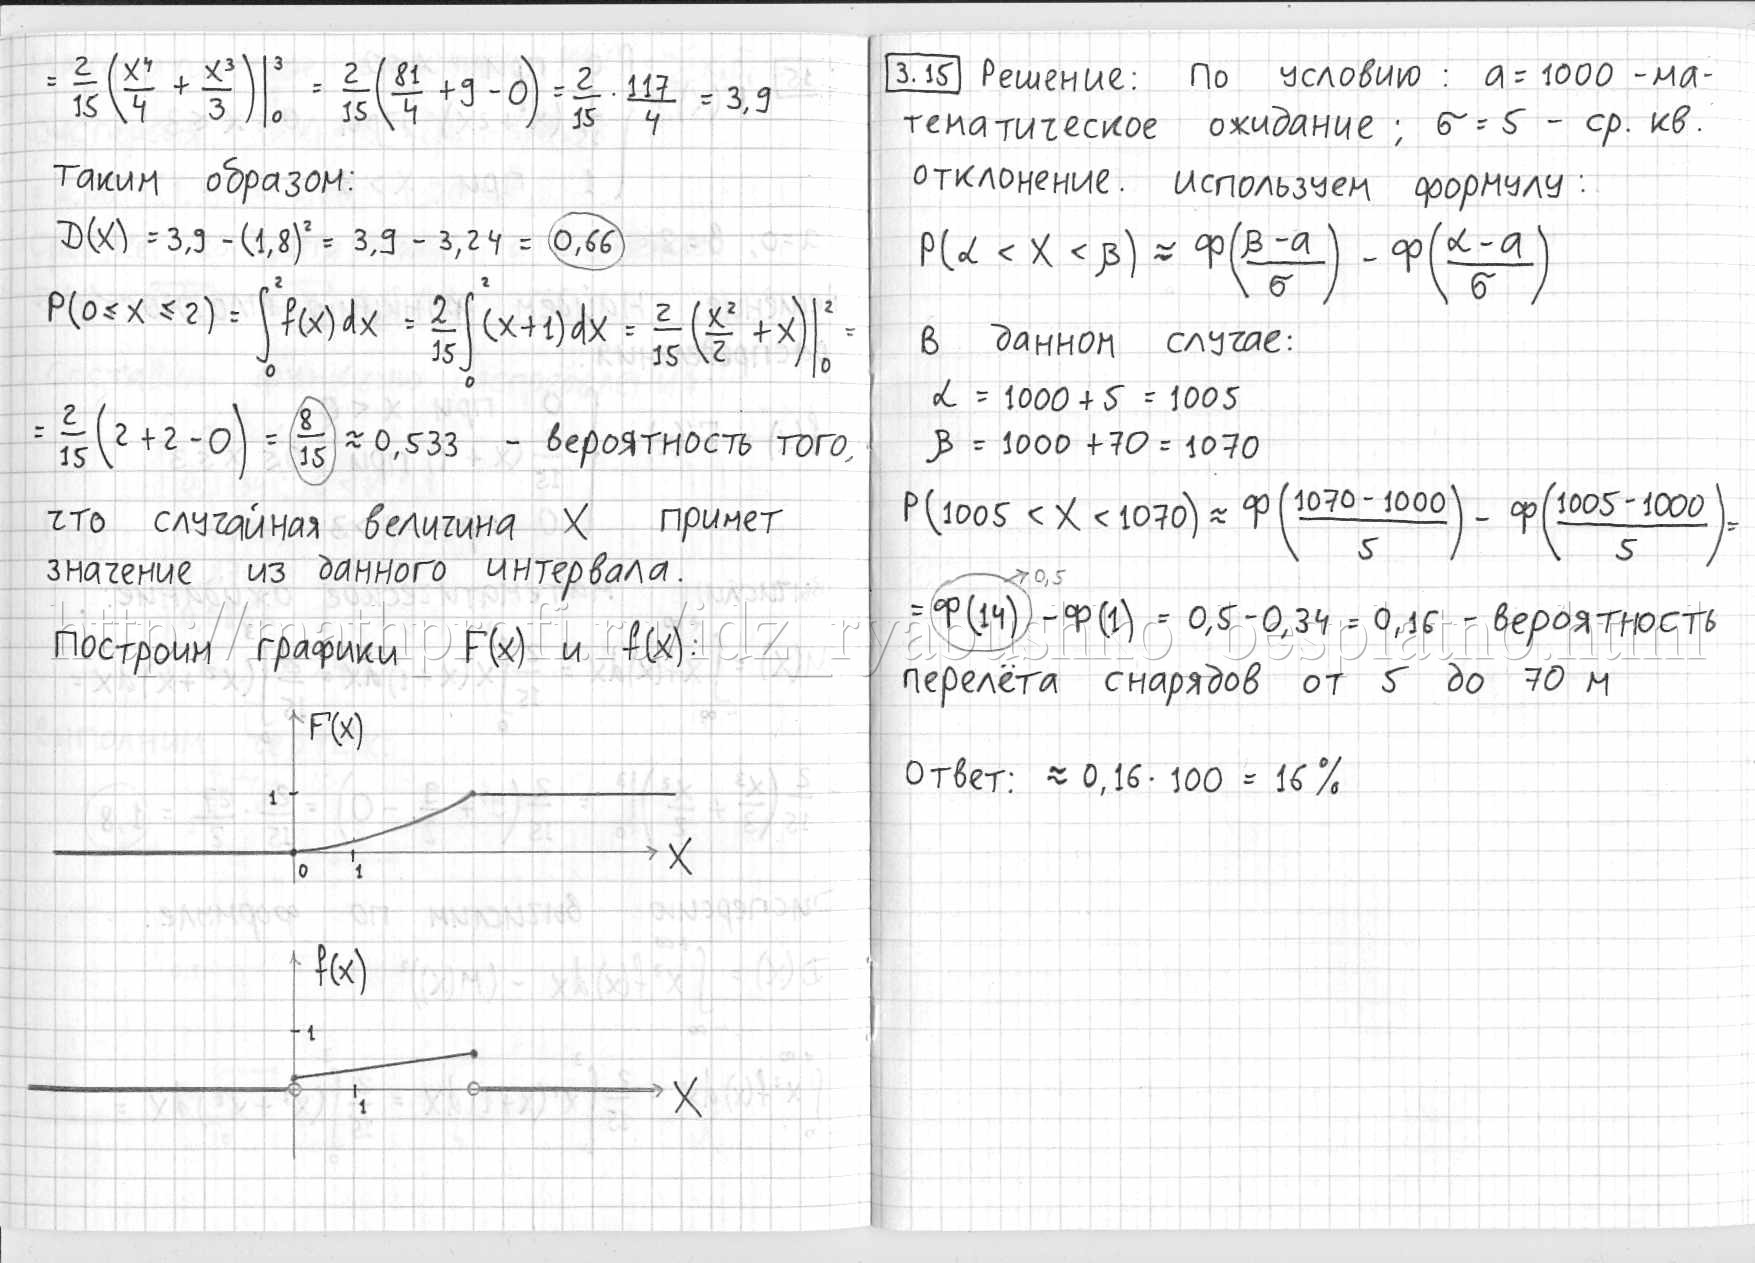 = 2/15 (x⁴/4 + x³/3) |₀³ = 2/15 (81/4 + 9 - 0) = 2/15 · 117/4 = 3,9
Таким образом:
D(X) = 3,9 - (1,8)² = 3,9 - 3,24 = 0,66
P(0 ≤ x ≤ 2) = ∫₀² f(x)dx = 2/15 ∫₀² (x+1)dx = 2/15 (x²/2 + x) |₀² =
= 2/15 (2 + 2 - 0) = 8/15 ≈ 0,533 - вероятность того,
что случайная величина X примет
значение из данного интервала.
http://mathprofi.ru/idz_ryabushko_besplatno.html
Построим графики F(x) и f(x):
F(x)
1
0 1 X
f(x)
1
1 X
3.15 Решение: По условию: a = 1000 - ма-
тематическое ожидание; σ = 5 - ср. кв.
отклонение. Используем формулу:
P(α < X < β) ≈ Φ((β - a)/σ) - Φ((α - a)/σ)
В данном случае:
α = 1000 + 5 = 1005
β = 1000 + 70 = 1070
P(1005 < X < 1070) ≈ Φ((1070 - 1000)/5) - Φ((1005 - 1000)/5) =
→ 0,5
= Φ(14) - Φ(1) = 0,5 - 0,34 = 0,16 - вероятность
перелёта снарядов от 5 до 70 м
Ответ: ≈ 0,16 · 100 = 16%